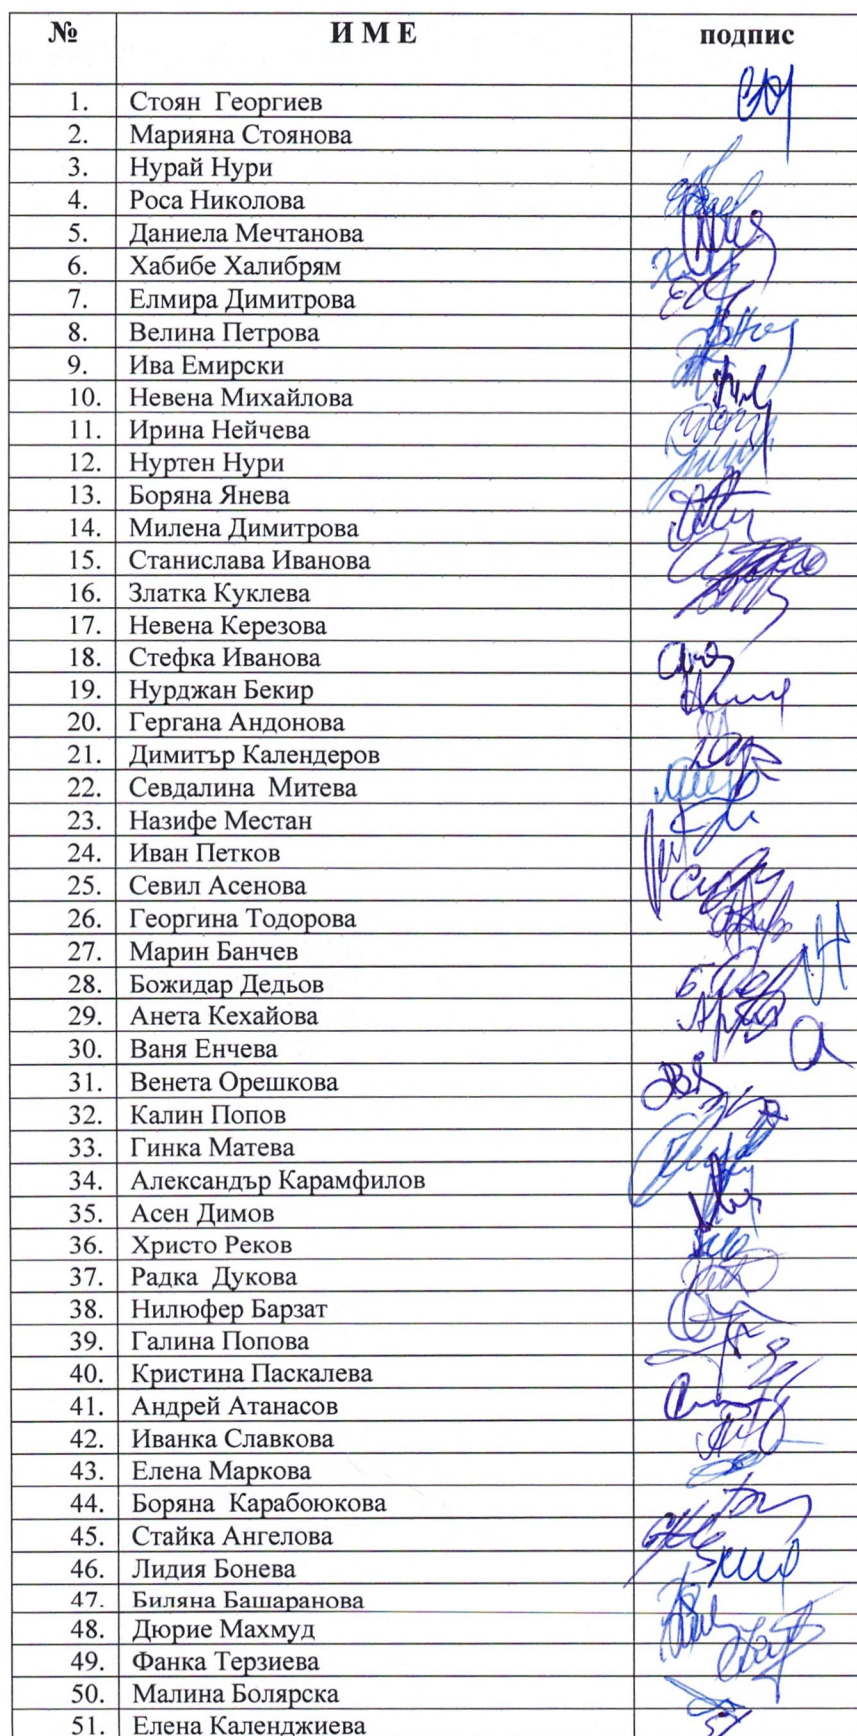 № И М Е подпис
1. Стоян Георгиев
2. Марияна Стоянова
3. Нурай Нури
4. Роса Николова
5. Даниела Мечтанова
6. Хабибе Халибрям
7. Елмира Димитрова
8. Велина Петрова
9. Ива Емирски
10. Невена Михайлова
11. Ирина Нейчева
12. Нуртен Нури
13. Боряна Янева
14. Милена Димитрова
15. Станислава Иванова
16. Златка Куклева
17. Невена Керезова
18. Стефка Иванова
19. Нурджан Бекир
20. Гергана Андонова
21. Димитър Календеров
22. Севдалина Митева
23. Назифе Местан
24. Иван Петков
25. Севил Асенова
26. Георгина Тодорова
27. Марин Банчев
28. Божидар Дедьов
29. Анета Кехайова
30. Ваня Енчева
31. Венета Орешкова
32. Калин Попов
33. Гинка Матева
34. Александър Карамфилов
35. Асен Димов
36. Христо Реков
37. Радка Дукова
38. Нилюфер Барзат
39. Галина Попова
40. Кристина Паскалева
41. Андрей Атанасов
42. Иванка Славкова
43. Елена Маркова
44. Боряна Карабоюкова
45. Стайка Ангелова
46. Лидия Бонева
47. Биляна Башаранова
48. Дюрие Махмуд
49. Фанка Терзиева
50. Малина Болярска
51. Елена Календжиева